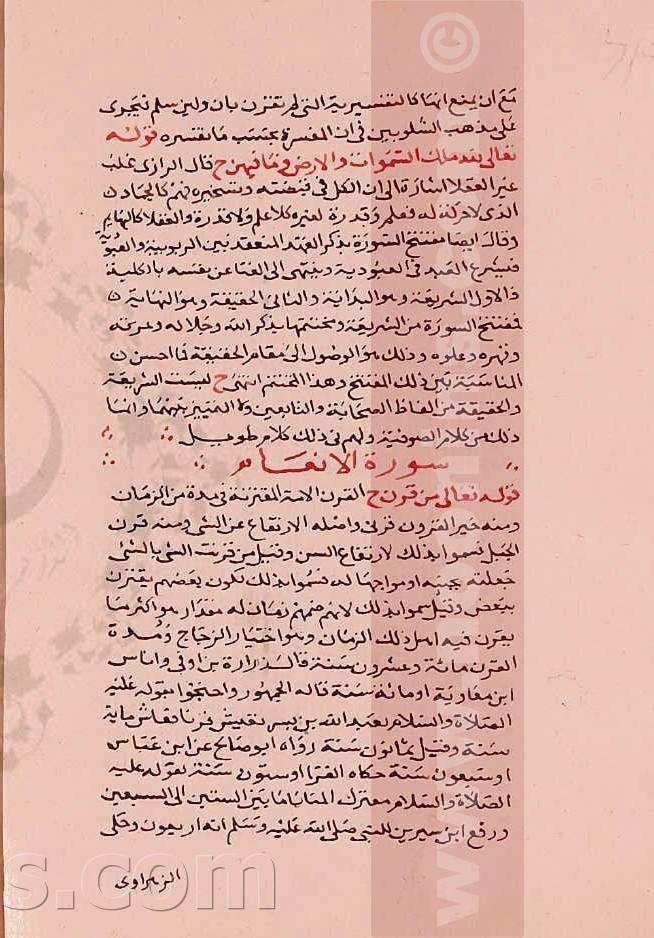 مع ان يمنع انها كالتفسيرية التى لم تقترن بان ولئن سلم فيجرى
على مذهب الشلوبين فى ان المفسرة بحسب ما تفسره قوله
تعالى لله ملك السموات والارض وما فيهن ح قال الرازى غلب
غير العقلا اشارة الى ان الكل فى قبضته وتسخيره فهم كالجمادات
الذى لا حركة له فعلمه وقدرة لغيره كلا علم ولا قدرة والعقلا كالبهايم
وقال ايضا مفتتح السورة بذكر العهد المنعقد بين الربوبية والعبودية
فيشرع العبد فى العبودية وينتهى الى الفنا عن نفسه بالكلية
فالاول الشريعة وهو البداية والثانى الحقيقة وهو النهاية
فمفتتح السورة من الشريعة ومختتمها بذكر الله وجلاله وعزته
وقهره وعلوه وذلك هو الوصول الى مقام الحقيقة فما احسن
المناسبة بين ذلك المفتتح وهذا المختتم انتهى ح ليست الشريعة
والحقيقة من الفاظ الصحابة والتابعين ولا التمييز بينهما وانما
ذلك من كلام الصوفية ولهم فى ذلك كلام طويل
سورة الانعام
قوله تعالى من قرن ح القرن الامة المقترنة فى مدة من الزمان
ومنه خير القرون قرنى واصله الارتفاع عن الشى ومنه قرن
الجبل فسموا بذلك لارتفاع السن وقيل من قرنت الشى بالشى
جعلته بجنبه او مواجها له فسموا بذلك لكون بعضهم يقترن
ببعض وقيل سموا بذلك لانهم جمعهم زمان له مقدار هو اكثر ما
يقرن فيه اهل ذلك الزمان وهو اختيار الزجاج ومدة
القرن مائة وعشرون سنة قاله زرارة بن اوفى واياس
ابن معاوية او مائة سنة قاله الجمهور واحتجوا بقوله عليه
الصلاة والسلام لعبد الله بن بسر تعيش قرنا فعاش ماية
سنة وقيل ثمانون سنة رواه ابو صالح عن ابن عباس
او سبعون سنة حكاه الفرا او ستون سنة لقوله عليه
الصلاة والسلام معترك المنايا ما بين الستين الى السبعين
ورفع ابن سيرين للنبى صلى الله عليه وسلم انه اربعون وحكى
الزهراوى